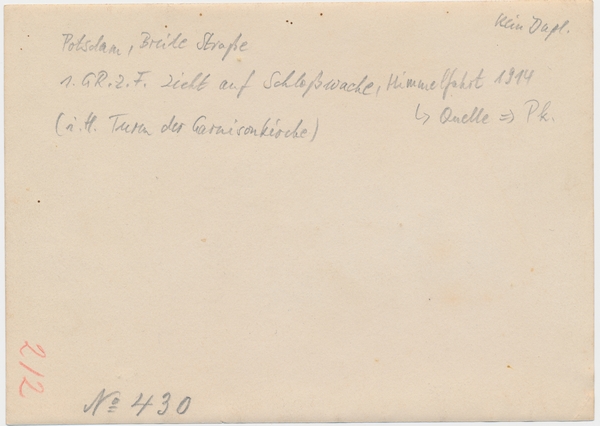 Kein Dupl.
Potsdam, Breite Straße
1. G.R.z.F. zieht auf Schloßwache, Himmelfahrt 1914
↳ Quelle ⇒ Pk.
(i. H. Turm der Garnisonkirche)
212
No 430